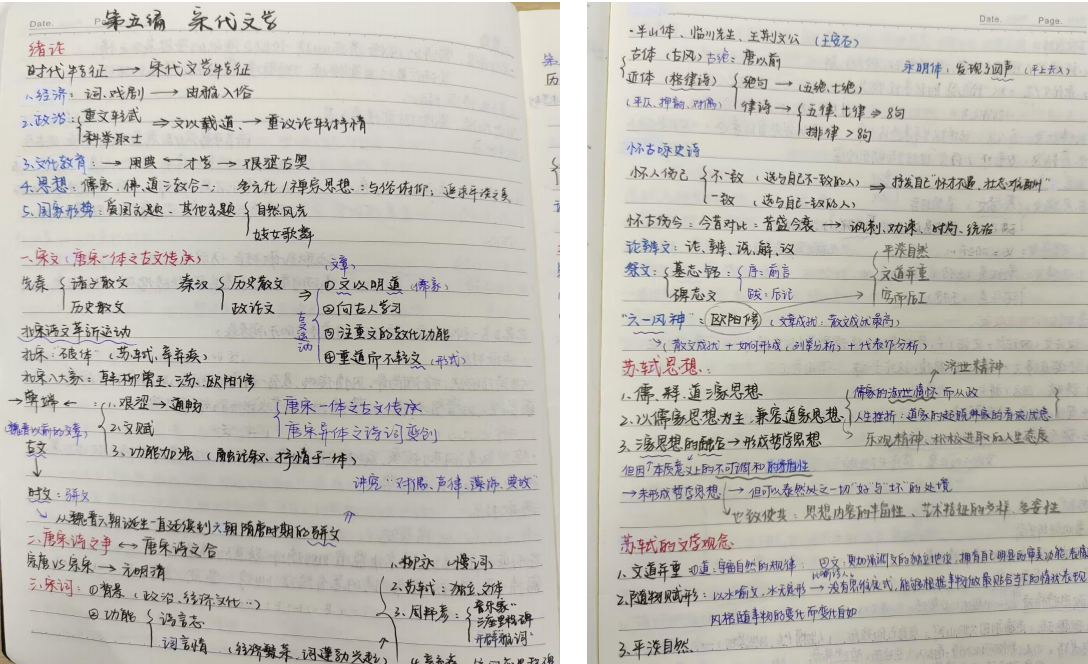 Date.
第五编 宋代文学
绪论
时代特征 → 宋代文学特征
1.经济：词、戏剧 → 由雅入俗
2.政治：重文轻武
科举取士
⇒ 文以载道、→ 重议论轻抒情
3.文化教育：→ 用典 ← 才学 → 艰涩古奥
4.思想：儒家、佛、道三教合一； 多元化/禅宗思想：与俗体仰，追求平淡之美
5.国家形势：爱国主题、其他主题
自然风光
妓女歌舞
一、宋文（唐宋一体之古文传承）
先秦 诸子散文
历史散文
秦汉 历史散文
政论文
（文章）
古文运动
①文以明道（儒家）
②向古人学习
③注重文的教化功能
④重道所不轻文（形式）
北宋诗文革新运动
北宋"破体"（苏轼、辛弃疾）
八大家：韩柳曾王、三苏、欧阳修
1.艰涩 → 通畅
2.文赋
3.功能加强（融议叙、抒情于一体）
唐宋一体之古文传承
唐宋异体之诗词变创
古文
讲究"对偶、声律、藻饰、典故"
时文：骈文
从魏晋六朝诞生一直延续到六朝隋唐时期的骈文
二、唐宋诗之争 ↔ 唐宋诗之合
宗唐VS宗宋 → 元明清
三、宋词：①背景（政治、经济文化…）
②功能 诗言志
词言情（经济繁荣、词遂勃兴起）
1.柳永（慢词）
2.苏轼：独立文体
3.周邦彦：
音乐家
Date. Page.
·半山体、临川先生、王荆文公（王安石）
古体（古风）古绝：唐以前
永明体：发现了四声（平上去入）
近体（格律诗）
（平仄、押韵、对偶）
绝句 → 五绝、七绝
律诗 → 五律、七律 ⇒ 8句
排律 > 8句
怀古咏史诗
怀人伤己 不一致（选与自己不一致的人）
一致（选与自己一致的人）
⇒ 抒发自己"怀才不遇、壮志难酬"
怀古伤今：今昔对比：昔盛今衰 → 讽刺、劝谏、时局、统治
论辩文：论、辩、说、解、议
祭文：墓志铭
碑志文
序：前言
跋：后记
平淡自然
文道并重
穷而后工
"六一风神"：欧阳修（文章成就：散文成就最高）
→（散文成就 + 如何形成（列举分析）+ 代表作分析）
苏轼思想：
1.儒、释、道三家思想
2.以儒家思想为主，兼容道家思想
3.三家思想的融合 → 形成哲学思想
济世精神
儒家的济世情怀而从政
人生挫折：道家的超脱佛家的看破忧患
乐观精神、积极进取的人生态度
但因"本质意义上的不可调和的矛盾性
→ 未形成哲学思想
→ 但可以泰然处之一切"好"与"坏"的处境
也致使其：思想内容的丰富性、艺术特征的多样、多变性
苏轼的文学观念
1.文道并重 ①道：导自然的规律；
2.随物赋形：以水喻文，水无定形 → 没有思维定式，能够根据事物故
风格随事物的变化而变化自如
3.平淡自然.